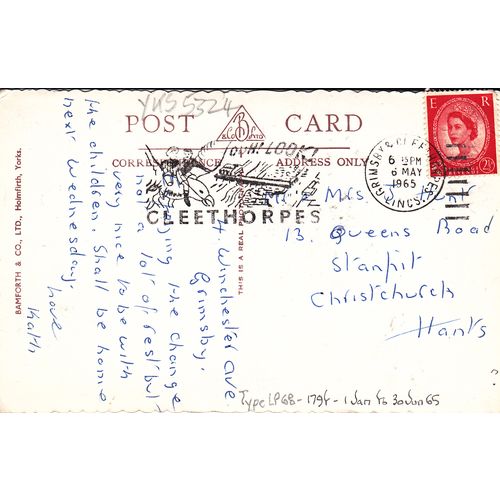 YKS 5324
POST CARD
B&Co Ltd
CORRESPONDENCE
ADDRESS ONLY
OH! LOOK!
CLEETHORPES
GRIMSBY & CLEETHORPES
6 15PM
6 MAY
1965
LINCS.
E R
2½
Mrs Hunt
13. Queens Road
Stanpit
Christchurch
Hants
4. Winchester Ave
Grimsby.
Enjoying the change
not a lot of rest but
very nice to be with
the children. Shall be home
next Wednesday.
love
Kath
THIS IS A REAL PHOTO
BAMFORTH & CO., LTD., Holmfirth, Yorks.
Type LP6B - 179f - 1 Jan to 30 Jun 65